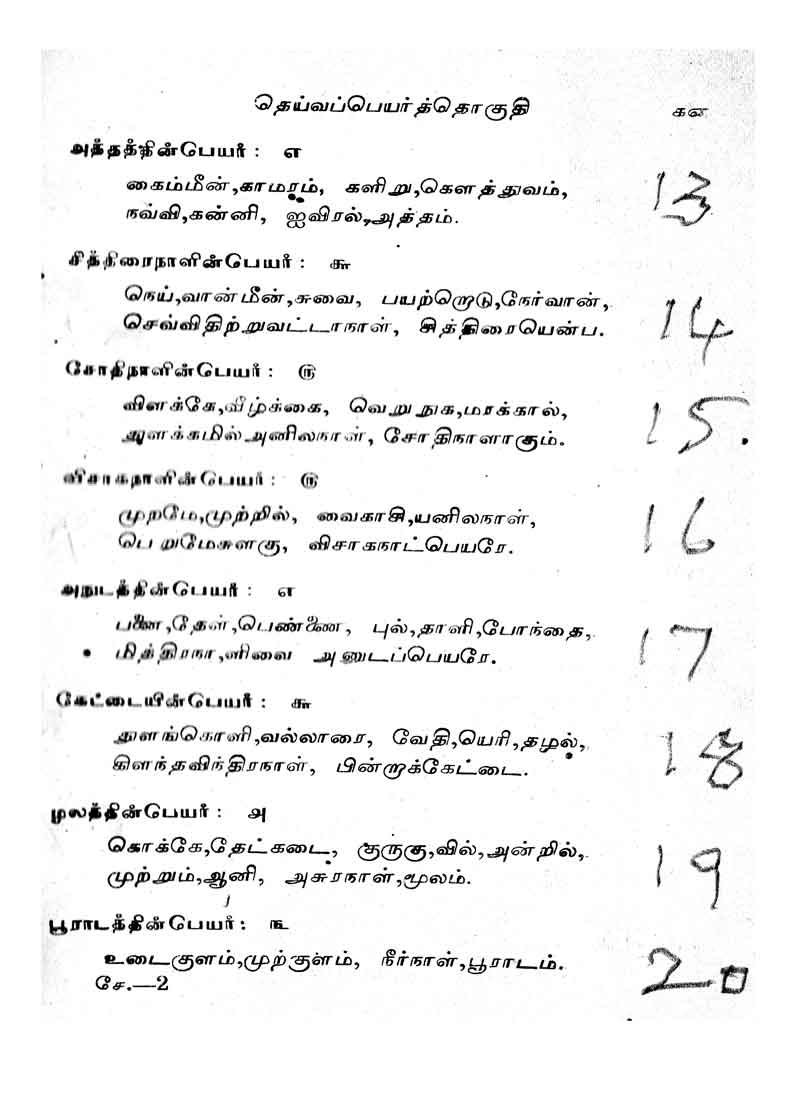 தெய்வப்பெயர்த்தொகுதி கஎ
அத்தத்தின்பெயர் : எ
கைம்மீன்,காமரம், களிறு,கௌத்துவம்,
நவ்வி,கன்னி, ஐவிரல்,அத்தம்.
13
சித்திரைநாளின்பெயர் : சு
நெய்,வான்மீன்,சுவை, பயற்றெடு,நேர்வான்,
செவ்விதிற்றுவட்டாநாள், சித்திரையென்ப.
14
சோதிநாளின்பெயர் : ரு
விளக்கே,வீழ்க்கை, வெறுநுக,மரக்கால்,
துளக்கமில்அனிலநாள், சோதிநாளாகும்.
15.
விசாகநாளின்பெயர் : ரு
முறமே,முற்றில், வைகாசி,யனிலநாள்,
பெறுமேசுளகு, விசாகநாட்பெயரே.
16
அநுடத்தின்பெயர் : எ
பனை,தேள்,பெண்ணை, புல்,தாளி,போந்தை,
மித்திரநா,ளிவை அனுடப்பெயரே.
17
கேட்டையின்பெயர் : சு
துளங்கொளி,வல்லாரை, வேதி,யெரி,தழல்,
கிளந்தவிந்திரநாள், பின்றாக்கேட்டை.
18
மூலத்தின்பெயர் : அ
கொக்கே,தேட்கடை, குருகு,வில்,அன்றில்,
முற்றும்,ஆனி, அசுரநாள்,மூலம்.
19
பூராடத்தின்பெயர் : ந
உடைகுளம்,முற்குளம், நீர்நாள்,பூராடம்.
சே.—2
20